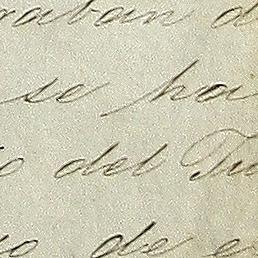 raban d
se ha
o del Tu
o de e